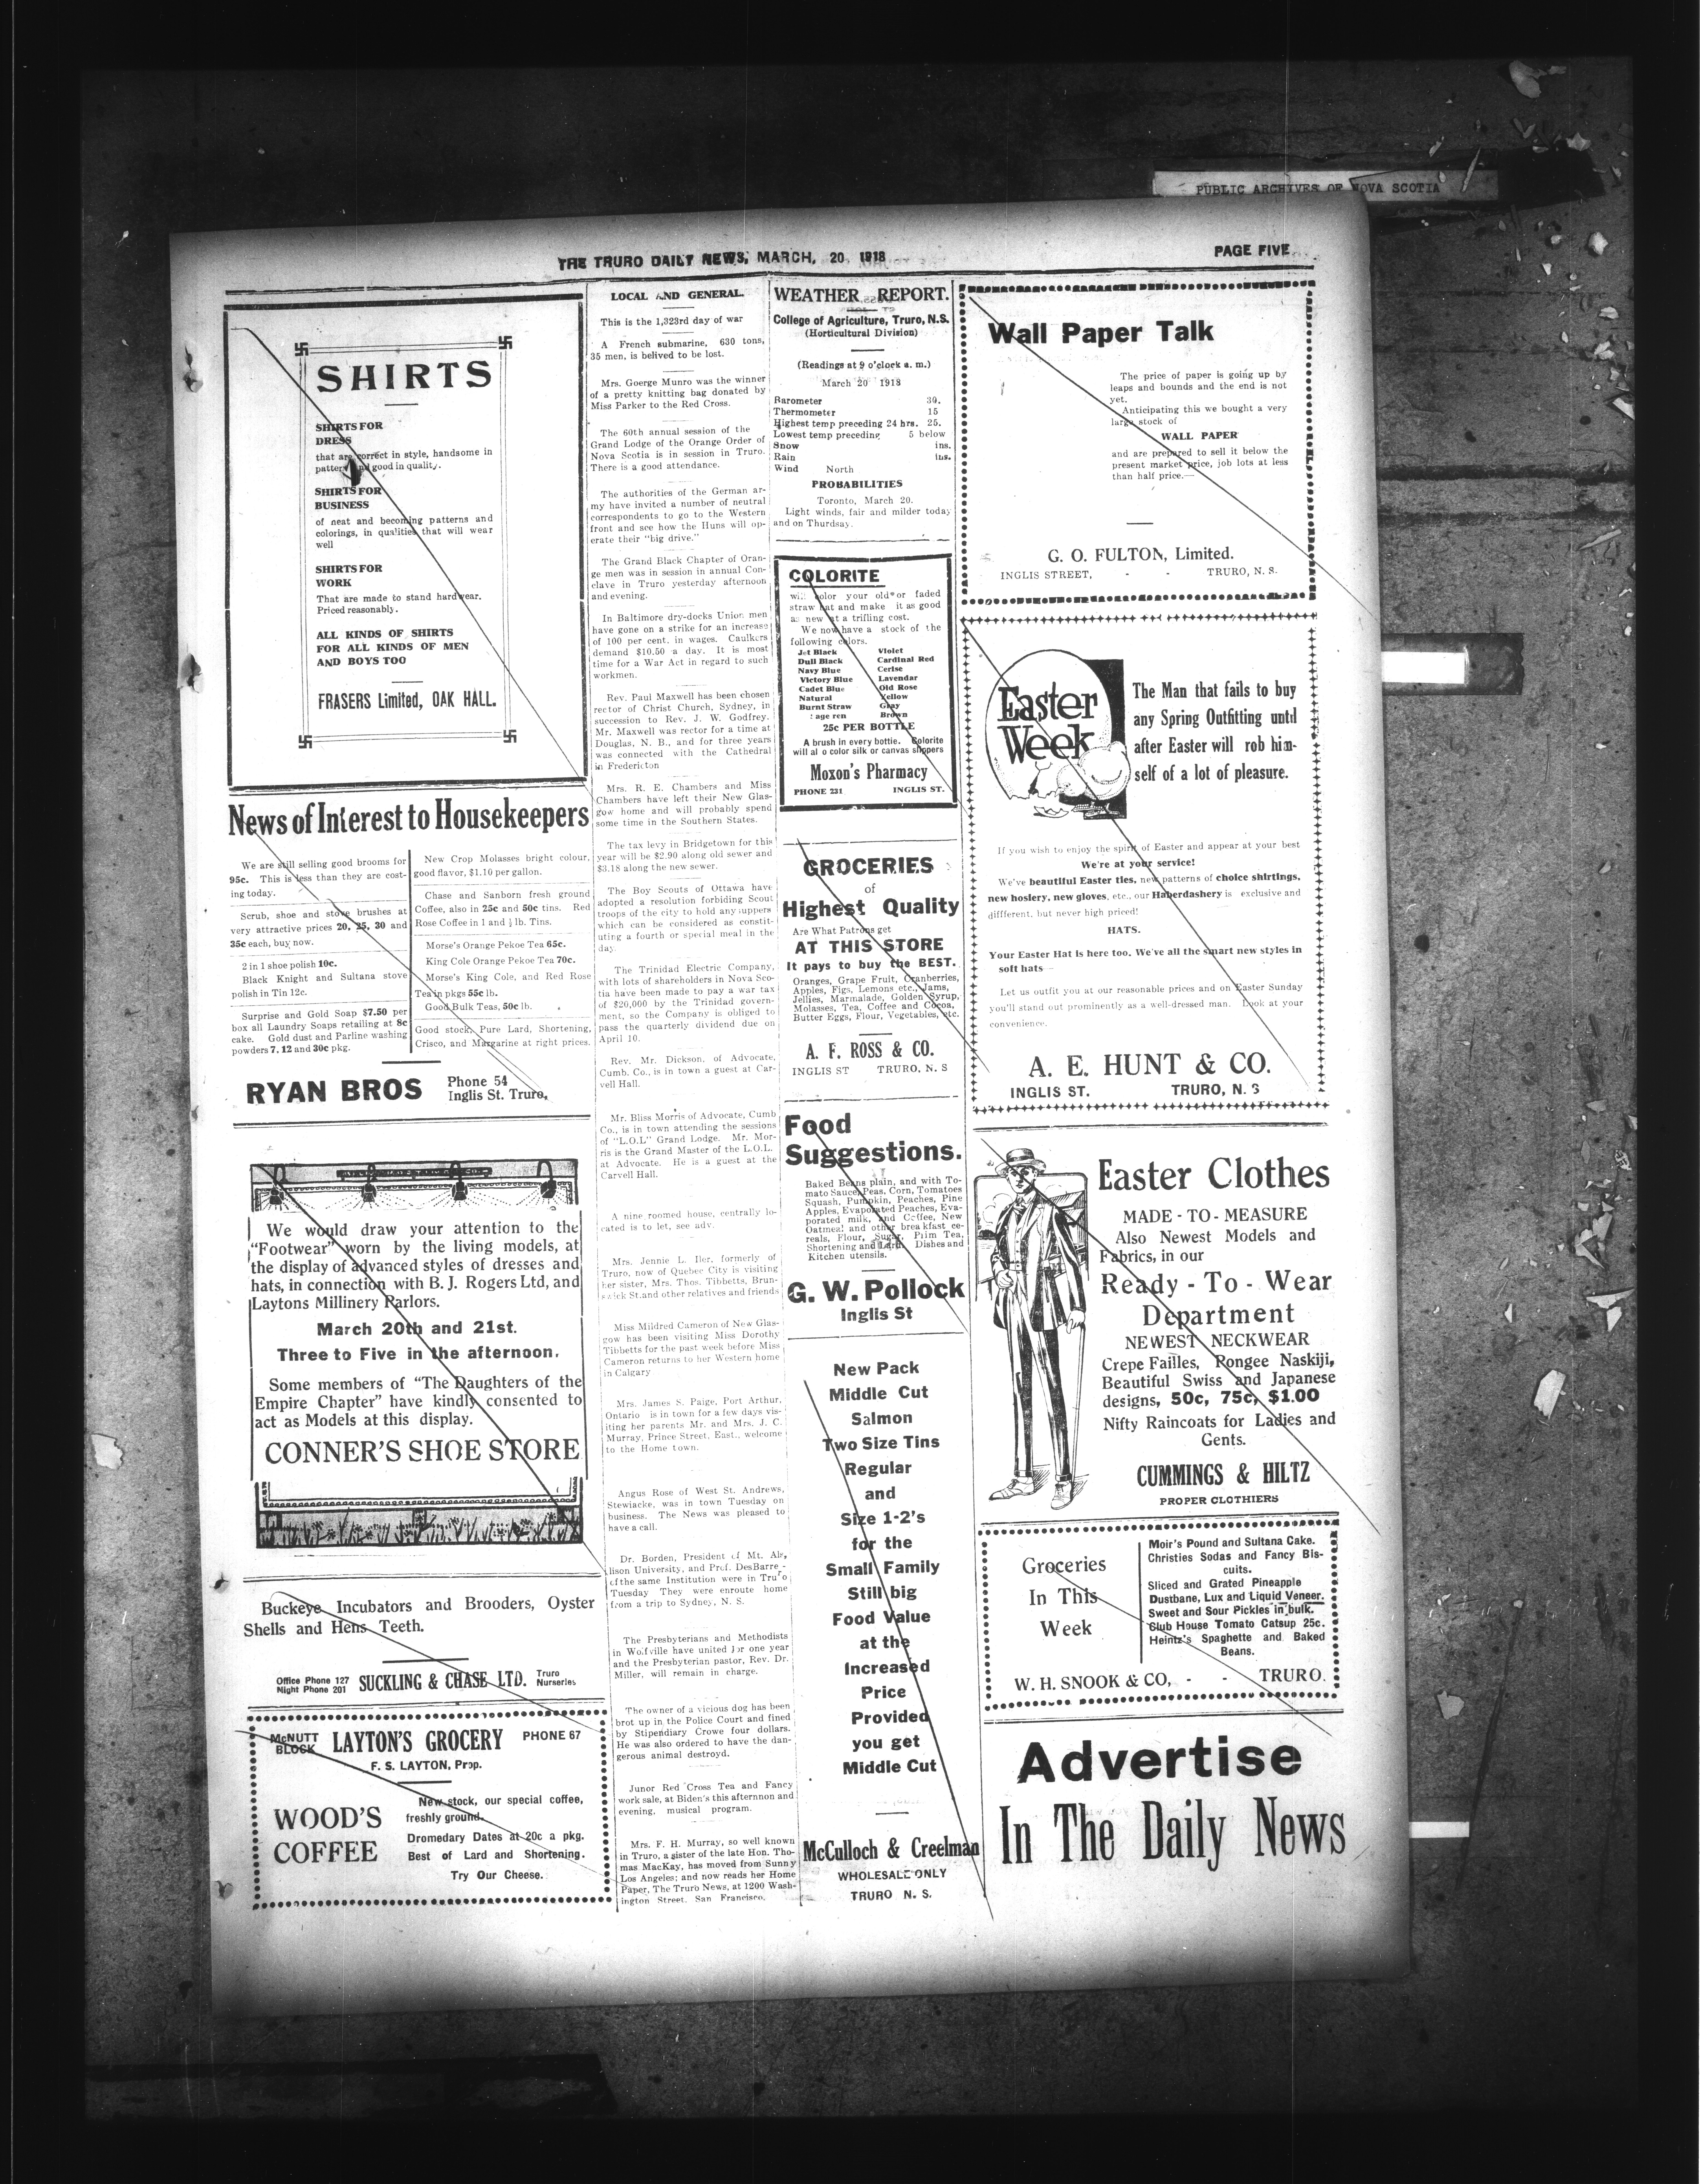 PUBLIC ARCHIVES OF NOVA SCOTIA
THE TRURO DAILY NEWS, MARCH, 20, 1918
PAGE FIVE
SHIRTS
SHIRTS FOR
DRESS
that are correct in style, handsome in
patterns and good in quality.
SHIRTS FOR
BUSINESS
of neat and becoming patterns and
colorings, in qualities that will wear
well
SHIRTS FOR
WORK
That are made to stand hardwear.
Priced reasonably.
ALL KINDS OF SHIRTS
FOR ALL KINDS OF MEN
AND BOYS TOO
FRASERS Limited, OAK HALL.
News of Interest to Housekeepers
We are still selling good brooms for
95c. This is less than they are cost-
ing today.
Scrub, shoe and stove brushes at
very attractive prices 20, 25, 30 and
35c each, buy now.
2 in 1 shoe polish 10c.
Black Knight and Sultana stove
polish in Tin 12c.
Surprise and Gold Soap $7.50 per
box all Laundry Soaps retailing at 8c
cake. Gold dust and Parline washing
powders 7, 12 and 30c pkg.
New Crop Molasses bright colour,
good flavor, $1.10 per gallon.
Chase and Sanborn fresh ground
Coffee, also in 25c and 50c tins. Red
Rose Coffee in 1 and ½ lb. Tins.
Morse's Orange Pekoe Tea 65c.
King Cole Orange Pekoe Tea 70c.
Morse's King Cole, and Red Rose
Tea in pkgs 55c lb.
Good Bulk Teas, 50c lb.
Good stock, Pure Lard, Shortening,
Crisco, and Margarine at right prices.
RYAN BROS
Phone 54
Inglis St. Truro,
We would draw your attention to the
"Footwear" worn by the living models, at
the display of advanced styles of dresses and
hats, in connection with B. J. Rogers Ltd, and
Laytons Millinery Parlors.
March 20th and 21st.
Three to Five in the afternoon.
Some members of "The Daughters of the
Empire Chapter" have kindly consented to
act as Models at this display.
CONNER'S SHOE STORE
Buckeye Incubators and Brooders, Oyster
Shells and Hens Teeth.
Office Phone 127
Night Phone 201
SUCKLING & CHASE LTD.
Truro
Nurseries
McNUTT
BLOCK
LAYTON'S GROCERY
PHONE 67
F. S. LAYTON, Prop.
WOOD'S
COFFEE
New stock, our special coffee,
freshly ground.
Dromedary Dates at 20c a pkg.
Best of Lard and Shortening.
Try Our Cheese.
LOCAL AND GENERAL
This is the 1,323rd day of war
A French submarine, 630 tons,
35 men, is belived to be lost.
Mrs. Goerge Munro was the winner
of a pretty knitting bag donated by
Miss Parker to the Red Cross.
The 60th annual session of the
Grand Lodge of the Orange Order of
Nova Scotia is in session in Truro.
There is a good attendance.
The authorities of the German ar-
my have invited a number of neutral
correspondents to go to the Western
front and see how the Huns will op-
erate their "big drive."
The Grand Black Chapter of Oran-
ge men was in session in annual Con-
clave in Truro yesterday afternoon
and evening.
In Baltimore dry-docks Union men
have gone on a strike for an increase
of 100 per cent. in wages. Caulkers
demand $10.50 a day. It is most
time for a War Act in regard to such
workmen.
Rev. Paul Maxwell has been chosen
rector of Christ Church, Sydney, in
succession to Rev. J. W. Godfrey.
Mr. Maxwell was rector for a time at
Douglas, N. B., and for three years
was connected with the Cathedral
in Fredericton
Mrs. R. E. Chambers and Miss
Chambers have left their New Glas-
gow home and will probably spend
some time in the Southern States.
The tax levy in Bridgetown for this
year will be $2.90 along old sewer and
$3.18 along the new sewer.
The Boy Scouts of Ottawa have
adopted a resolution forbiding Scout
troops of the city to hold any suppers
which can be considered as constit-
uting a fourth or special meal in the
day.
The Trinidad Electric Company,
with lots of shareholders in Nova Sco-
tia have been made to pay a war tax
of $20,000 by the Trinidad govern-
ment, so the Company is obliged to
pass the quarterly dividend due on
April 10.
Rev. Mr. Dickson, of Advocate,
Cumb. Co., is in town a guest at Car-
vell Hall.
Mr. Bliss Morris of Advocate, Cumb
Co., is in town attending the sessions
of "L.O.L" Grand Lodge. Mr. Mor-
ris is the Grand Master of the L.O.L.
at Advocate. He is a guest at the
Carvell Hall.
A nine roomed house, centrally lo-
cated is to let, see adv.
Mrs. Jennie L. Iler, formerly of
Truro, now of Quebec City is visiting
her sister, Mrs. Thos. Tibbetts, Brun-
swick St. and other relatives and friends
Miss Mildred Cameron of New Glas-
gow has been visiting Miss Dorothy
Tibbetts for the past week before Miss
Cameron returns to her Western home
in Calgary
Mrs. James S. Paige, Port Arthur,
Ontario is in town for a few days vis-
iting her parents Mr. and Mrs. J. C.
Murray, Prince Street, East., welcome
to the Home town.
Angus Rose of West St. Andrews,
Stewiacke, was in town Tuesday on
business. The News was pleased to
have a call.
Dr. Borden, President of Mt. Al-
lison University, and Prof. DesBarre
of the same Institution were in Truro
Tuesday They were enroute home
from a trip to Sydney, N. S.
The Presbyterians and Methodists
in Wolfville have united for one year
and the Presbyterian pastor, Rev. Dr.
Miller, will remain in charge.
The owner of a vicious dog has been
brot up in the Police Court and fined
by Stipendiary Crowe four dollars.
He was also ordered to have the dan-
gerous animal destroyd.
Junor Red Cross Tea and Fancy
work sale, at Biden's this afternnon and
evening, musical program.
Mrs. F. H. Murray, so well known
in Truro, a sister of the late Hon. Tho-
mas MacKay, has moved from Sunny
Los Angeles; and now reads her Home
Paper, The Truro News, at 1200 Wash-
ington Street, San Francisco.
WEATHER REPORT.
College of Agriculture, Truro, N.S.
(Horticultural Division)
(Readings at 9 o'clock a. m.)
March 20 1918
Barometer 30.
Thermometer 15
Highest temp preceding 24 hrs. 25.
Lowest temp preceding 5 below
Snow ins.
Rain ins.
Wind North
PROBABILITIES
Toronto, March 20.
Light winds, fair and milder today
and on Thurdsay.
COLORITE
will color your old or faded
straw hat and make it as good
as new at a trifling cost.
We now have a stock of the
following colors.
Jet Black Violet
Dull Black Cardinal Red
Navy Blue Cerise
Victory Blue Lavendar
Cadet Blue Old Rose
Natural Yellow
Burnt Straw Gray
Brown
25c PER BOTTLE
A brush in every bottle. Colorite
will al o color silk or canvas slippers
Moxon's Pharmacy
PHONE 231 INGLIS ST.
GROCERIES
of
Highest Quality
Are What Patrons get
AT THIS STORE
It pays to buy the BEST.
Oranges, Grape Fruit, Cranberries,
Apples, Figs, Lemons etc., Jams,
Jellies, Marmalade, Golden Syrup,
Molasses, Tea, Coffee and Cocoa,
Butter Eggs, Flour, Vegetables, etc.
A. F. ROSS & CO.
INGLIS ST TRURO, N. S
Food
Suggestions.
Baked Beans plain, and with To-
mato Sauce, Peas, Corn, Tomatoes
Squash, Pumpkin, Peaches, Pine
Apples, Evaporated Peaches, Eva-
porated milk, and Coffee, New
Oatmeal and other breakfast ce-
reals, Flour, Sugar, Prim Tea,
Shortening and Lard. Dishes and
Kitchen utensils.
G. W. Pollock
Inglis St
New Pack
Middle Cut
Salmon
Two Size Tins
Regular
and
Size 1-2's
for the
Small Family
Still big
Food Value
at the
Increased
Price
Provided
you get
Middle Cut
McCulloch & Creelman
WHOLESALE ONLY
TRURO N. S.
Wall Paper Talk
The price of paper is going up by
leaps and bounds and the end is not
yet.
Anticipating this we bought a very
large stock of
WALL PAPER
and are prepared to sell it below the
present market price, job lots at less
than half price.—
G. O. FULTON, Limited.
INGLIS STREET, - - TRURO, N. S.
Easter
Week
The Man that fails to buy
any Spring Outfitting until
after Easter will rob him-
self of a lot of pleasure.
If you wish to enjoy the spirit of Easter and appear at your best
We're at your service!
We've beautiful Easter ties, new patterns of choice shirtings,
new hosiery, new gloves, etc., our Haberdashery is exclusive and
diffferent, but never high priced!
HATS.
Your Easter Hat is here too. We've all the smart new styles in
soft hats —
Let us outfit you at our reasonable prices and on Easter Sunday
you'll stand out prominently as a well-dressed man. Look at your
convenience.
A. E. HUNT & CO.
INGLIS ST. TRURO, N. S
Easter Clothes
MADE - TO - MEASURE
Also Newest Models and
Fabrics, in our
Ready - To - Wear
Department
NEWEST NECKWEAR
Crepe Failles, Pongee Naskiji,
Beautiful Swiss and Japanese
designs, 50c, 75c, $1.00
Nifty Raincoats for Ladies and
Gents.
CUMMINGS & HILTZ
PROPER CLOTHIERS
Groceries
In This
Week
Moir's Pound and Sultana Cake.
Christies Sodas and Fancy Bis-
cuits.
Sliced and Grated Pineapple
Dustbane, Lux and Liquid Veneer.
Sweet and Sour Pickles in bulk.
Club House Tomato Catsup 25c.
Heintz's Spaghette and Baked
Beans.
W. H. SNOOK & CO, - - TRURO.
Advertise
In The Daily News